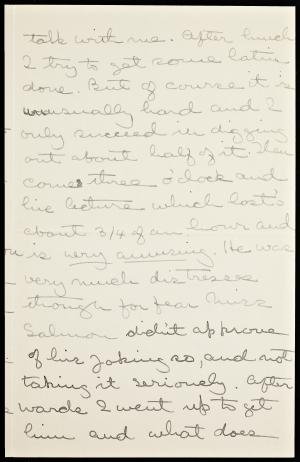 talk with me. After lunch
I try to get some latin
done. But of course it is
unusually hard and I
only succeed in digging
out about half of it. Then
comes three o'clock and
his lecture which lasts
about 3/4 of an hour and
is very amusing. He was
very much distresses
though for fear Miss
Salmon did't approve
of his joking so, and not
taking it seriously. After
wards I went up to get
him and what does